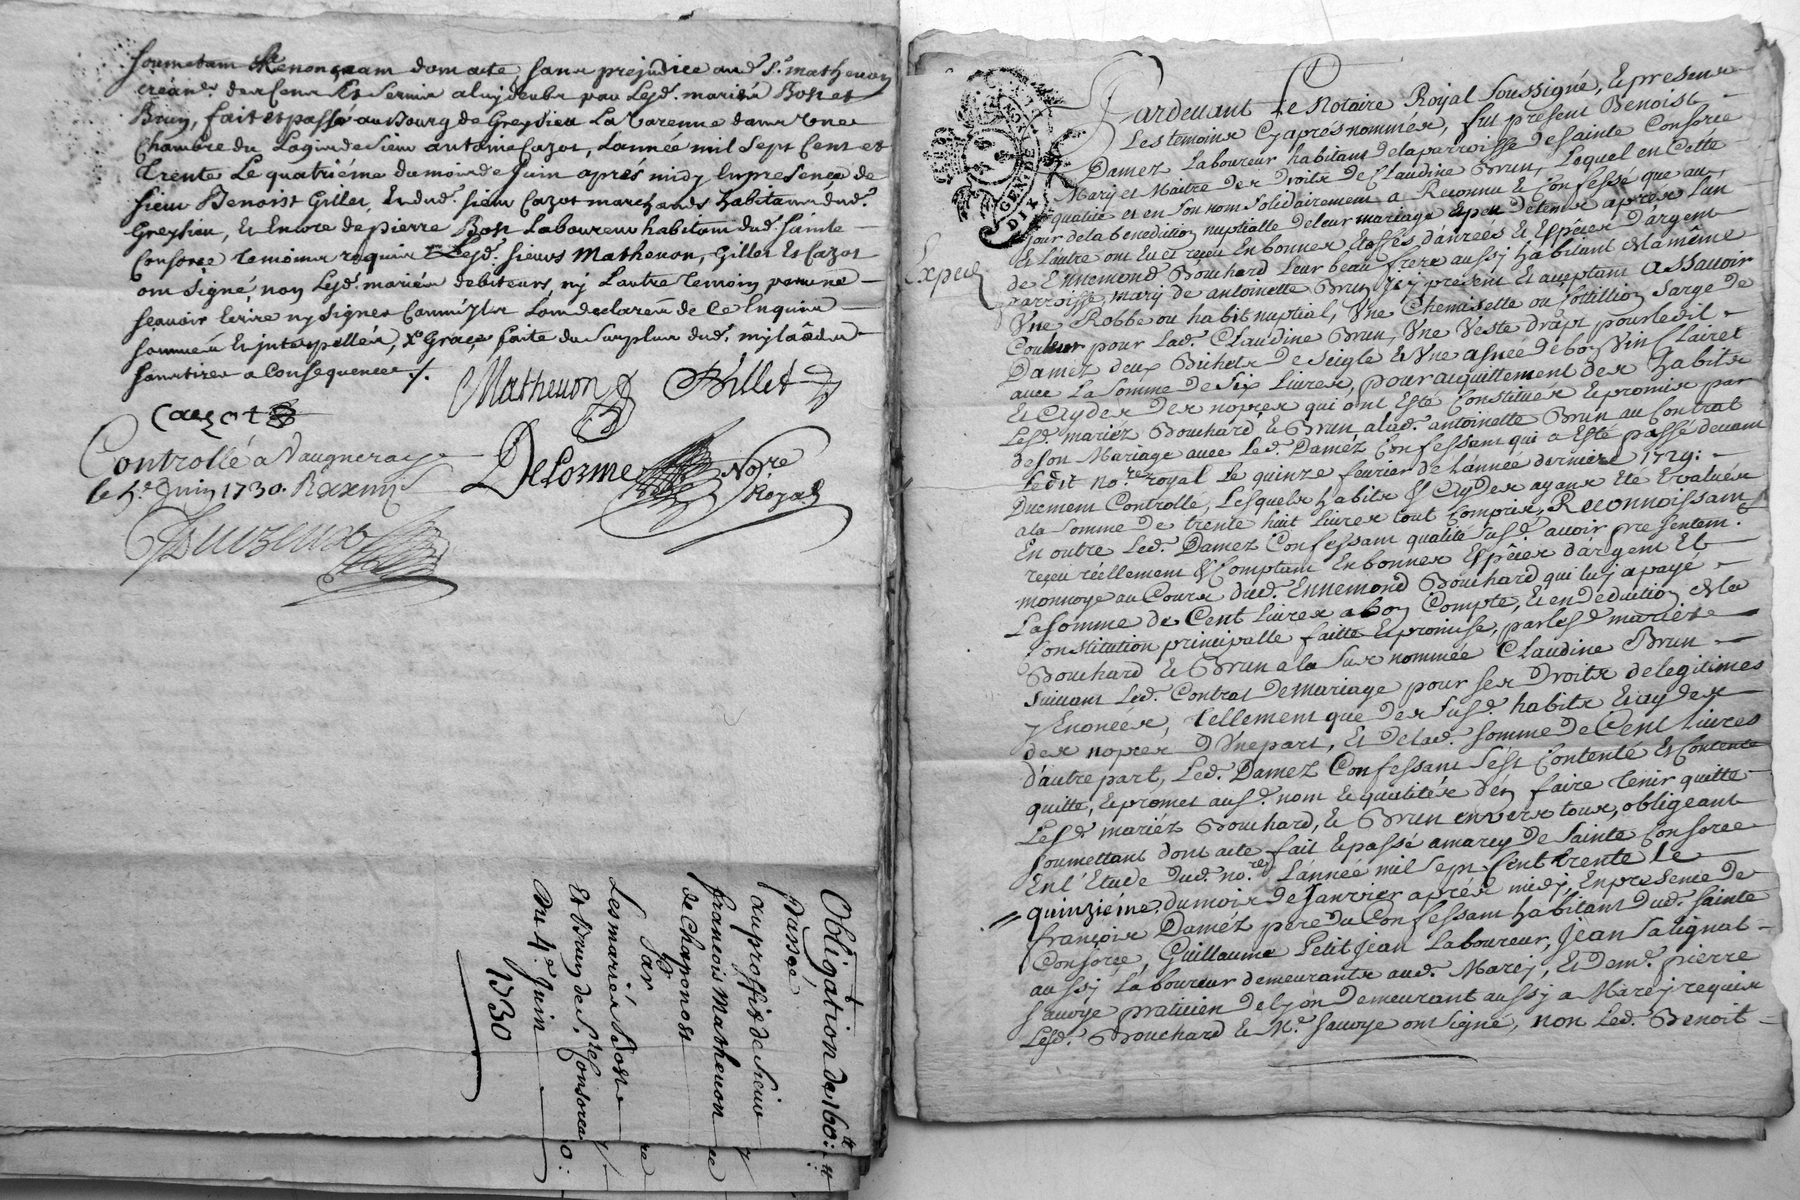 soumetam Renonçeam dom acte, sans prejudice aud. Sr. Matheuon
créances des Cens Et Servis a luy deubs par Lesd. mariés Bost et
Brun, fait et passé au Bourg de Greysieu La Varenne dans Une
Chambre du Logis de Sieur antoine Cazot, L'année mil sept Cent et
trente Le quatriéme du mois de Juin aprés midy En presence de
sieur Benoist Gillet, Et dud. sieur Cazot marchands habitans dud.
Greysieu, Et Encore de pierre Bost Laboureur habitant dud. Sainte
Consorce temoins requis Lesd. sieurs Matheuon, Gillet Et Cazot
ont signé, non Lesd. mariés debiteurs, ny L'autre temoin pour ne
sçauoir Ecrire ny signer Comm'ils L'ont declaré de Ce Enquis
sommés Et interpellés, Grace faite du surplus dud. mylaod
sans tirer a Consequence ./.
Matheuon Gillet
Cazot
Controllé à Vaugneray
le 5e. Juin 1730. R
Delorme Nore
Royal
Obligation de 160:
Passée
au proffit de sieur
françois Matheuon
de Chaponost
Par
Les mariés Bost
Et Brun de Ste. Consorce
Du 4e Juin
1730
GENDE
DIX
Pardevant Le Notaire Royal Soussigné, & presens
Les temoins Cy aprés nommés, fut present Benoist
Damez Laboureur habitant de la parroisse de Sainte Consorce
Mary et Maître des Droits de Claudine Brun, Lequel en Cette
qualité et en son nom solidairement a Reconnu & Confessé que au
jour de la benediction nuptialle de leur mariage & peu de tems aprés L'un
Et L'autre ont Eu et reçeu En bonnes Etoffes, danrées & Espéces d'argent
de Ennemond Bouchard Leur beau frere aussy habitant de la même
Exped
parroisse, mary de antoinette Brun icy present Et aceptant Assauoir
Une Robbe ou habit nuptial, Une Chemisette ou Cottillion sarge de
Couleur pour Lad. Claudine Brun, Une Veste drapt pour ledit
Damez deux Bichets de Seigle & Une asnée de bon Vin Clairet
auec La somme de Six Livres, pour acquittement des habits
Et Aydes des nopces qui ont Esté Constitués & promis par
Lesd. mariez Bouchard & Brun a lad. antoinette Brun au Contrat
de son Mariage auec Led. Damez Confessant qui a Esté passé deuant
Ledit nore. royal Le quinze feurier de L'année derniere 1729.
Duement Controllé, Lesquels habits & Aydes ayans Eté Evalués
a la somme de trente huit Livres tout Compris, Reconnoissant
En outre Led. Damez Confessant qualité susd. auoir presentem.t
reçeu réellement & Comptant En bonnes Espéces d'argent Et
monnoye au Cours dud. Ennemond Bouchard qui luy a payé
La somme de Cent Livres a bon Compte, & en deduction de la
Constitution principalle faitte & promise, par lesd. mariés
Bouchard & Brun a la sus nommée Claudine Brun
suiuant Led. Contrat de mariage pour ses Droits de legitimes
y Enoncés, tellement que des susd. habits Et aydes
des nopces d'Une part, Et de lad. somme de Cent Livres
d'autre part, Led. Damez Confessant s'est Contenté Et Contente
quitte, & promet ausd. nom & qualités d'en faire tenir quitte
Lesd. mariez Bouchard, & Brun envers tous, obligeant
soumettant dont acte fait & passé a marcy de Sainte Consorce
En L'Etude dud. nore. L'année mil sept Cent trente Le
quinzieme du mois de Janvier aprés midy, En presence de
françois Damez pere du Confessant habitant dud. Sainte
Consorce, Guillaume Petitjean Laboureur, Jean Salignat
aussy Laboureur demeurants aud. Marcy, Et de me. pierre
Sauoye praticien de Lyon demeurant aussy a Marcy requis
Lesd. Bouchard & Me. Sauoye ont signé, non Led. Benoit